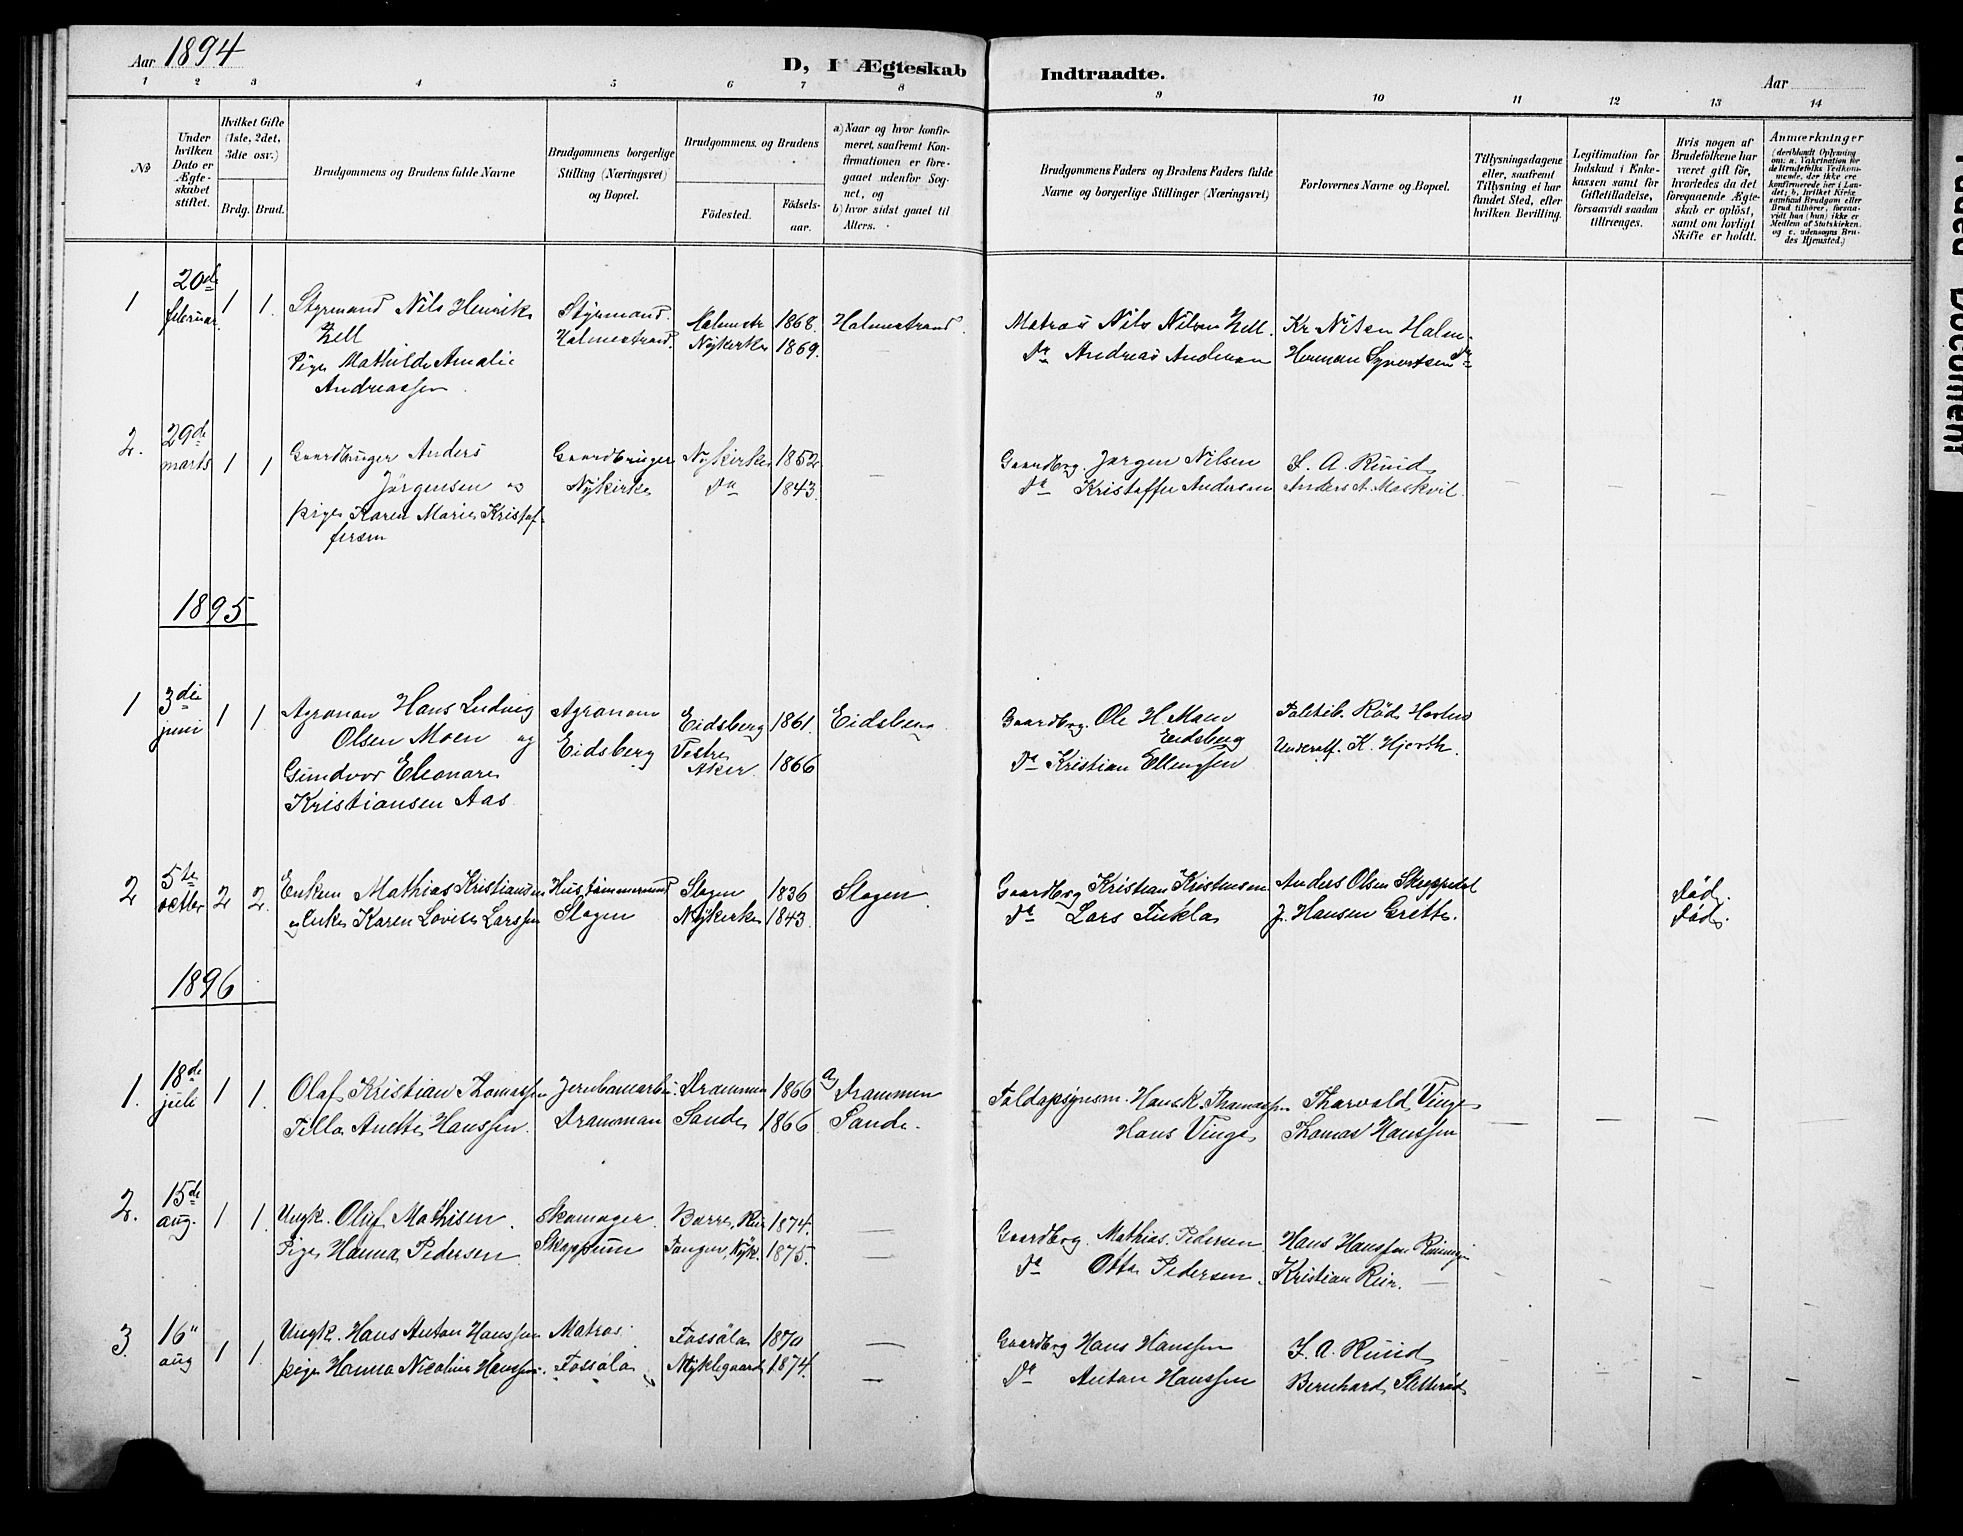 Aar 1894
D, I Ægteskab Indtraadte.
Aar
1 2 3 4 5 6 7 8 9 10 11 12 13 14
No
Under hvilken Dato er Ægteskabet stiftet.
Hvilket Gifte (1ste, 2det, 3die osv.)
Brdg. Brud.
Brudgommens og Brudens fulde Navne
Brudgommens borgerlige Stilling (Næringsvei) og Bopæl.
Brudgommens og Brudens
Fødested.
Fødselsaar.
a) Naar og hvor konfirmeret, saafremt Konfirmationen er foregaaet udenfor Sognet, og
b) hvor sidst gaaet til Alters.
Brudgommens Faders og Brudens Faders fulde Navne og borgerlige Stillinger (Næringsvei)
Forlovernes Navne og Bopæl.
Tillysningsdagene eller, saafremt Tillysning ei har fundet Sted, efter hvilken Bevilling.
Legitimation for Indskud i Enkekassen samt for Giftetilladelse, forsaavidt saadan tiltrænges.
Hvis nogen af Brudefolkene har været gift før, hvorledes da det foregaaende Ægteskab er opløst, samt om lovligt Skifte er holdt.
Anmærkninger
(deriblandt Oplysning om: a. Vakcination for de Brudefolks Vedkommende, der ikke ere konfirmerede her i Landet; b. hvilket Kirkesamfund Brudgom eller Brud tilhører, forsaavidt han (hun) ikke er Medlem af Statskirken, og c. udensogns Brudes Hjemsted.)
1 20de februar 1 1. Styrmand Nils Henrik Zell Styrmand Holmestrand. Holmestr 1868. Holmestrand. Matros Nils Nilsen Zell. Kr Nilsen Holm-
Pige Mathilde Amalie Andreassen Nykirke 1869. — Do Andreas Herman Syvertsen do
2. 29de marts 1 1 Gaardbruger Anders Jörgensen og Gaardbruger Nykirke Nykirke 1852 — Gaardbrg. Jørgen Nilsen F. A. Ruud
pige Karen Marie Kristoffersen Do 1843. Do Kristoffer Andersen Anders A. Moskvil — — —
1895
1 3die juni 1 1 Agronom Hans Ludvig Olsen Moen og Agronom Eidsberg Eidsberg 1861. Eidsberg Gaardbrg. Ole H. Moen Eidsberg Röd
Gundvor Eleonore Kristiansen Aas Vestre Aker 1866 Do Kristian Ellengsen K. Hjorth.
2 5te octbr 2 2. Enkem Mathias Kristiansen Hustømmermand Slagen Slagen 1836 Slagen. Gaardbrg Kristian Kristensen Anders Olsen Skoppedal død.
og Enke Karen Lovise Larssen Nykirke 1843. Do Lars J. Hansen Grette. død.
1896
1. 18de juli 1 1. Olaf Kristian Thomassen Jernbanearb. Drammen Drammen 1866 a) Drammen Hans K. Thomassen Thorvald Vinge
Tilla Anette Hanssen. Sande 1866. Sande. Hans Vinge Thomas Hanssen — — — —
2. 15de aug. 1 1. Ungk. Oluf Mathisen. Skomager. Skoppum Borre, 1874. — Gaardbrg. Mathias Pedersen. Hans Hanssen
Pige Hanna Pedersen Tangen, Nyk. 1875. — Do Otto Pedersen. Kristian — — — — —
3. 16" aug 1 1. Ungk. Hans Anton Hanssen Matros. Fossola Fossola 1870 — Gaardbrg Hans Hanssen F. A. Ruud
pige Hanna Nicoline Hanssen. Nyklegaard 1874. — Do Anton Hanssen Bernhard — — — —
Faded Document